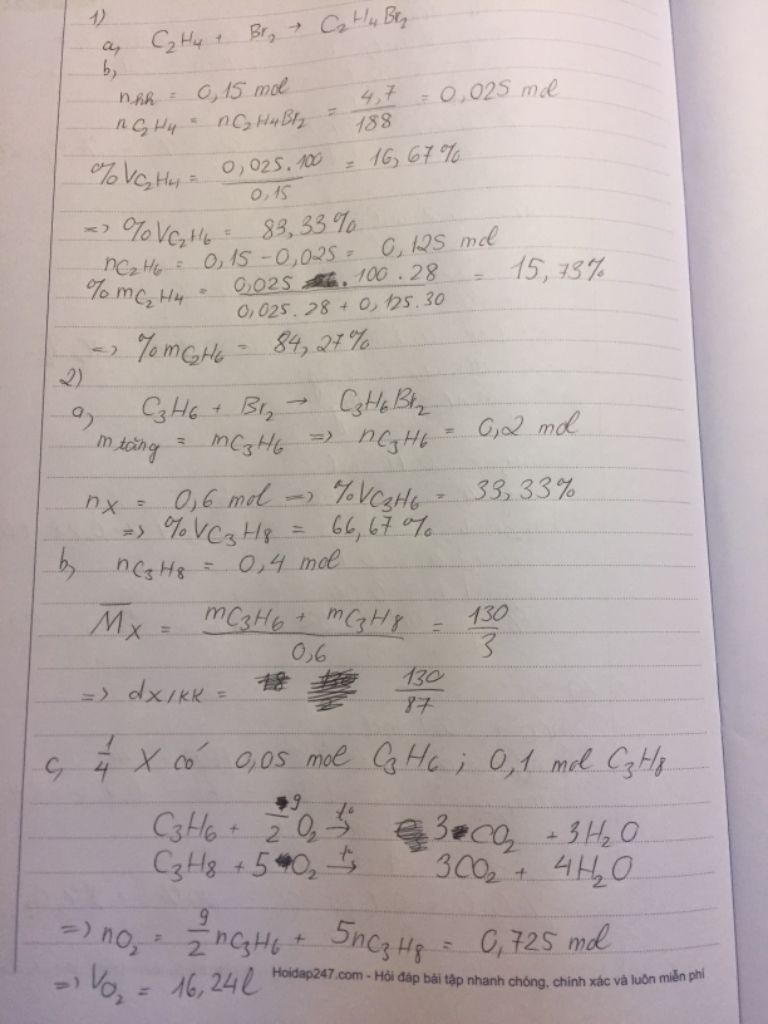 1)
a, C2H4 + Br2 → C2H4Br2
b,
nhh = 0,15 mol
nC2H4 = nC2H4Br2 = 4,7/188 = 0,025 mol
%VC2H4 = 0,025.100/0,15 = 16,67%
=> %VC2H6 = 83,33%
nC2H6 = 0,15 - 0,025 = 0,125 mol
%mC2H4 = 0,025.100.28/0,025.28 + 0,125.30 = 15,73%
=> %mC2H6 = 84,27%
2)
a, C3H6 + Br2 → C3H6Br2
m tăng = mC3H6 => nC3H6 = 0,2 mol
nX = 0,6 mol => %VC3H6 = 33,33%
=> %VC3H8 = 66,67%
b, nC3H8 = 0,4 mol
M̅X = mC3H6 + mC3H8/0,6 = 130/3
=> dX/KK = 130/87
c, 1/4 X có 0,05 mol C3H6 ; 0,1 mol C3H8
C3H6 + 9/2 O2 →t° 3CO2 + 3H2O
C3H8 + 5O2 →t° 3CO2 + 4H2O
=> nO2 = 9/2 nC3H6 + 5nC3H8 = 0,725 mol
=> VO2 = 16,24l
Hoidap247.com - Hỏi đáp bài tập nhanh chóng, chính xác và luôn miễn phí